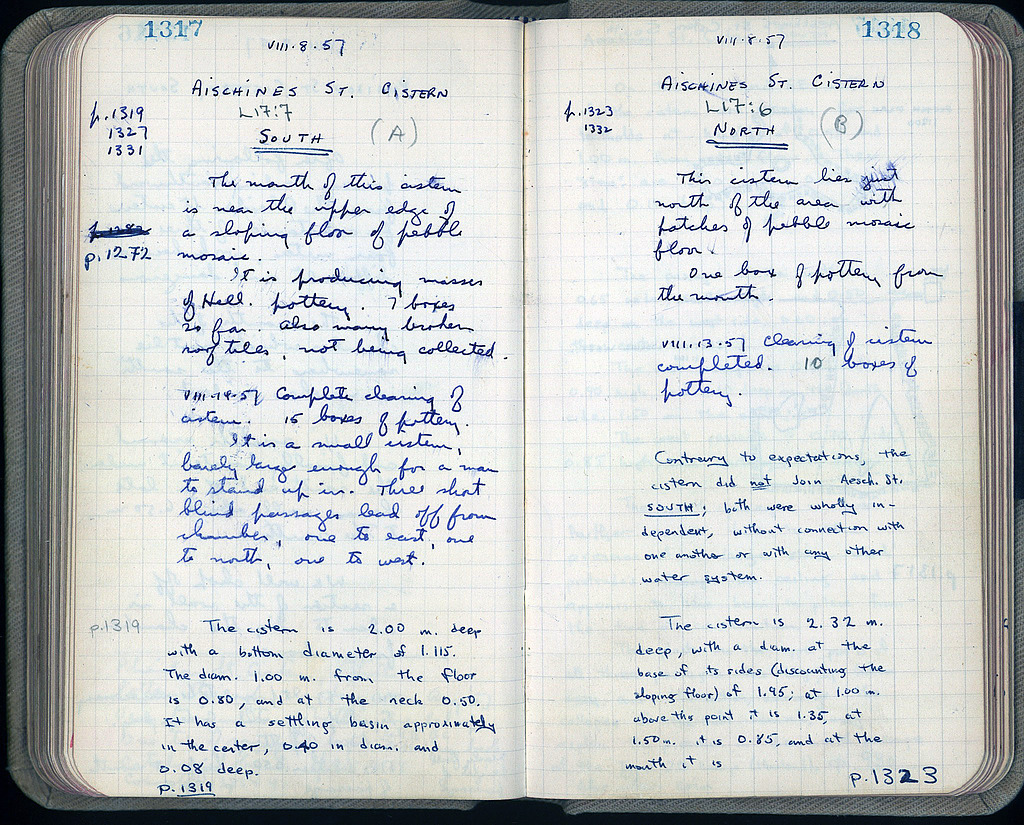 1317
VIII·8·57
AISCHINES ST. CISTERN
L17:7
p.1319
1327
1331
SOUTH (A)
The mouth of this cistern
is near the upper edge of
a sloping floor of pebble
mosaic.
p.1272
It is producing masses
of Hell. pottery. 7 boxes
so far. Also many broken
roof tiles, not being collected.
VIII·14·57 Complete cleaning of
cistern. 15 boxes of pottery.
It is a small cistern,
barely large enough for a man
to stand up in. Three short
blind passages lead off from
chamber, one to east, one
to north, one to west.
p.1319
The cistern is 2.00 m. deep
with a bottom diameter of 1.115.
The diam. 1.00 m. from the floor
is 0.80, and at the neck 0.50.
It has a settling basin approximately
in the center, 0.40 in diam. and
0.08 deep.
p.1319
1318
VIII·8·57
AISCHINES ST. CISTERN
L17:6
p.1323
1332
NORTH (B)
This cistern lies just
north of the area with
patches of pebble mosaic
floor.
One box of pottery from
the mouth.
VIII·13·57 Cleaning of cistern
completed. 10 boxes of
pottery.
Contrary to expectations, the
cistern did not join Aesch. St.
SOUTH; both were wholly in-
dependent, without connection with
one another or with any other
water system.
The cistern is 2.32 m.
deep, with a diam. at the
base of its sides (discounting the
sloping floor) of 1.95; at 1.00 m.
above this point it is 1.35, at
1.50 m. it is 0.85, and at the
mouth it is
p.1323